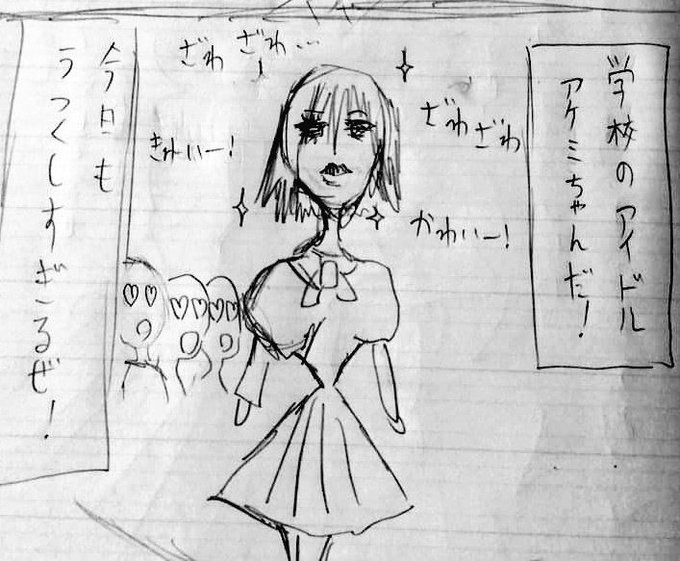 学校のアイドル
アケミちゃんだ！
ざわざわ
かわいー！
ざわ ざわ…
きれいー！
今日も
うつくしすぎるぜ！